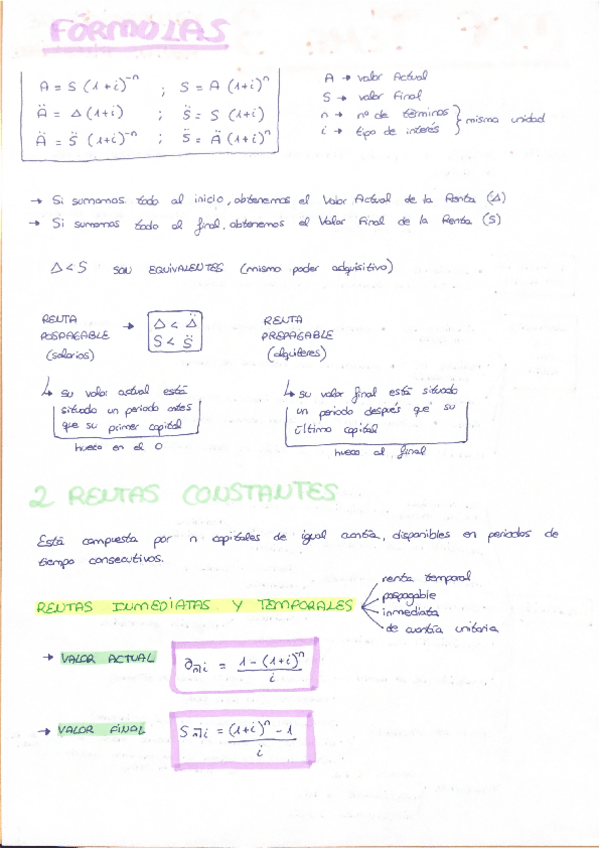 FÓRMULAS
A = S (1+i)⁻ⁿ ; S = A (1+i)ⁿ
Ä = A (1+i) ; S̈ = S (1+i)
Ä = S̈ (1+i)⁻ⁿ ; S̈ = Ä (1+i)ⁿ
A → valor Actual
S → valor Final
n → nº de términos
i → tipo de interés
} misma unidad
→ Si sumamos todo al inicio, obtenemos el Valor Actual de la Renta (A)
→ Si sumamos todo al final, obtenemos el Valor Final de la Renta (S)
A < S SON EQUIVALENTES (mismo poder adquisitivo)
RENTA
POSPAGABLE →
(salarios)
A < Ä
S < S̈
RENTA
PREPAGABLE
(alquileres)
↳ su valor actual está
situado un periodo antes
que su primer capital
hueco en el 0
↳ su valor final está situado
un periodo después que su
último capital
hueco al final
2 RENTAS CONSTANTES
Está compuesta por n capitales de igual cuantía, disponibles en periodos de
tiempo consecutivos.
RENTAS INMEDIATAS Y TEMPORALES
renta temporal
pospagable
inmediata
de cuantía unitaria
→ VALOR ACTUAL
a n̅|i = 1-(1+i)⁻ⁿ / i
→ VALOR FINAL
S n̅|i = (1+i)ⁿ - 1 / i